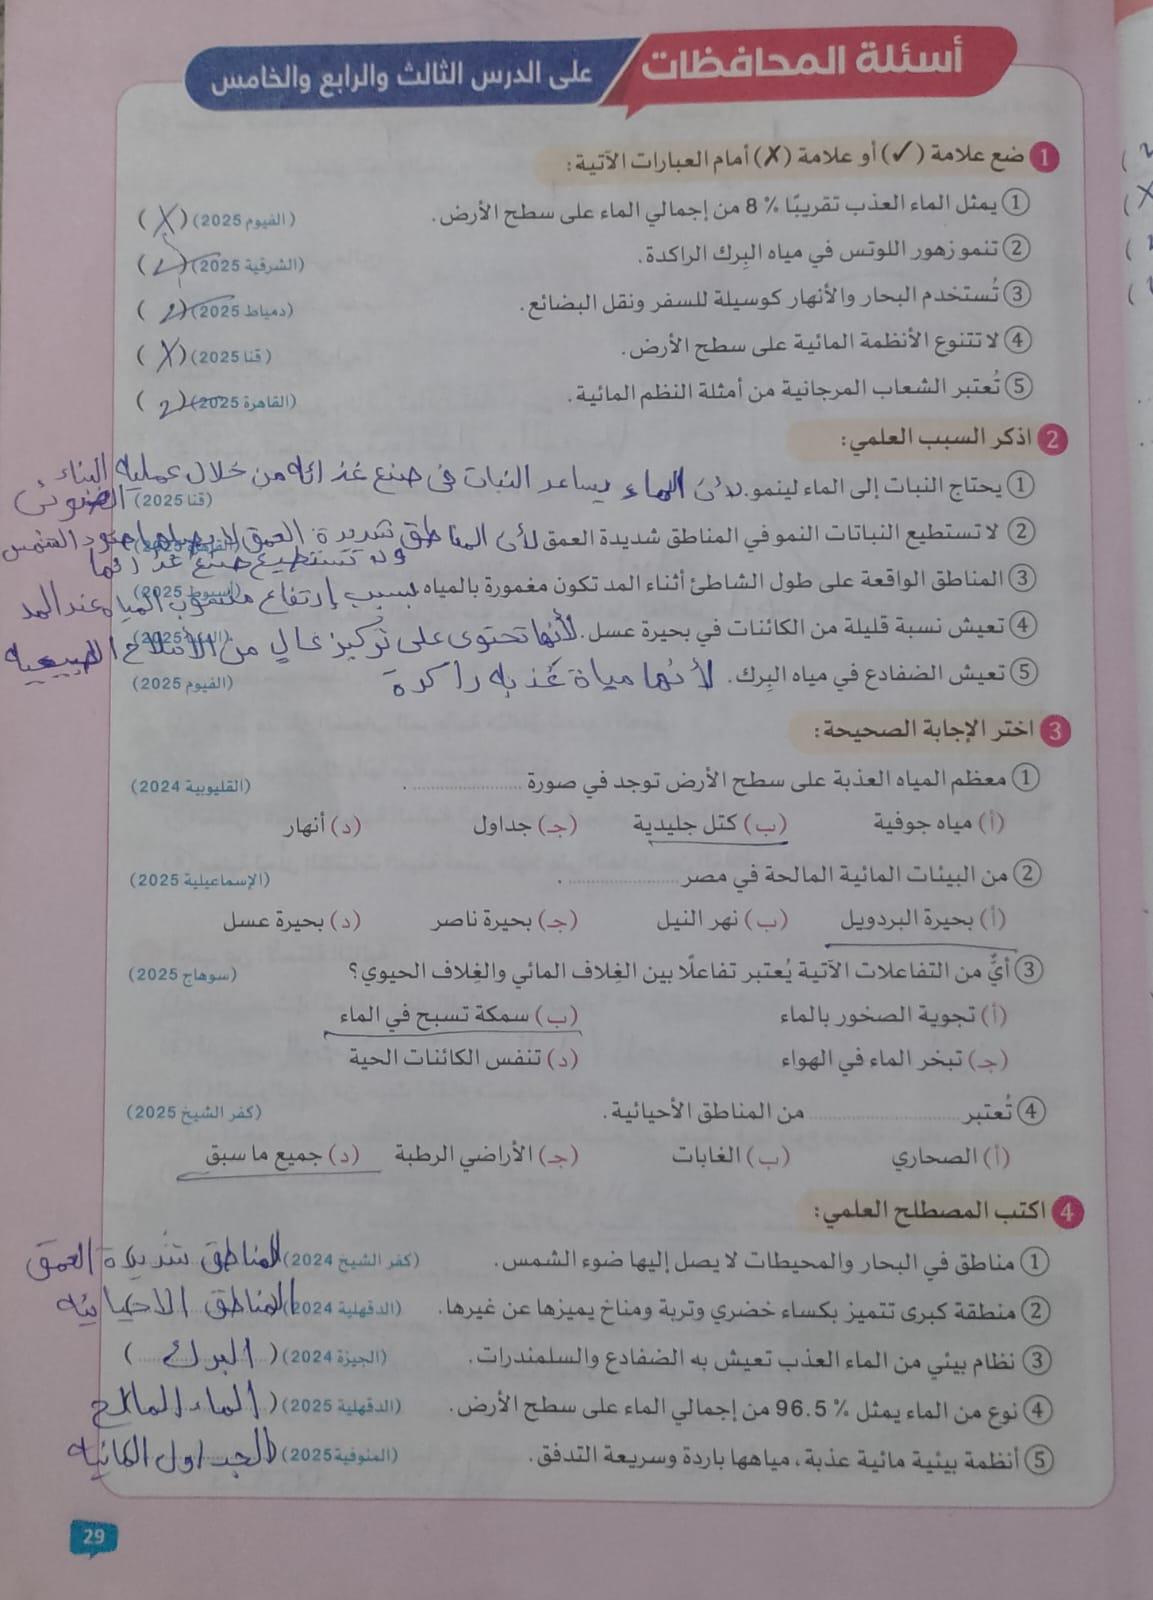 أسئلة المحافظات على الدرس الثالث والرابع والخامس
1 ضع علامة (✓) أو علامة (✗) أمام العبارات الآتية:
① يمثل الماء العذب تقريبًا 8 % من إجمالي الماء على سطح الأرض. (الفيوم 2025) (X)
② تنمو زهور اللوتس في مياه البِرك الراكدة. (الشرقية 2025) (✓)
③ تُستخدم البحار والأنهار كوسيلة للسفر ونقل البضائع. (دمياط 2025) (✓)
④ لا تتنوع الأنظمة المائية على سطح الأرض. (قنا 2025) (X)
⑤ تُعتبر الشعاب المرجانية من أمثلة النظم المائية. (القاهرة 2025) (✓)
2 اذكر السبب العلمي:
① يحتاج النبات إلى الماء لينمو. لأن الماء يساعد النبات فى صنع غذائه من خلال عملية البناء الضوئى (قنا 2025)
② لا تستطيع النباتات النمو في المناطق شديدة العمق لأن المناطق شديدة العمق لا يصلها ضوء الشمس ولا تستطيع صنع غذائها (القاهرة 2025)
③ المناطق الواقعة على طول الشاطئ أثناء المد تكون مغمورة بالمياه بسبب إرتفاع منسوب المياه عند المد (أسيوط 2025)
④ تعيش نسبة قليلة من الكائنات في بحيرة عسل. لأنها تحتوى على تركيز عالي من الأملاح الطبيعيه 2025)
⑤ تعيش الضفادع في مياه البِرك. لأنها مياة عذبه راكدة (الفيوم 2025)
3 اختر الإجابة الصحيحة:
① معظم المياه العذبة على سطح الأرض توجد في صورة .................... . (القليوبية 2024)
(أ) مياه جوفية (ب) كتل جليدية (جـ) جداول (د) أنهار
② من البيئات المائية المالحة في مصر .................... . (الإسماعيلية 2025)
(أ) بحيرة البردويل (ب) نهر النيل (جـ) بحيرة ناصر (د) بحيرة عسل
③ أيٌّ من التفاعلات الآتية يُعتبر تفاعلًا بين الغِلاف المائي والغِلاف الحيوي؟ (سوهاج 2025)
(أ) تجوية الصخور بالماء (ب) سمكة تسبح في الماء
(جـ) تبخر الماء في الهواء (د) تنفس الكائنات الحية
④ تُعتبر .................... من المناطق الأحيائية. (كفر الشيخ 2025)
(أ) الصحاري (ب) الغابات (جـ) الأراضي الرطبة (د) جميع ما سبق
4 اكتب المصطلح العلمي:
① مناطق في البحار والمحيطات لا يصل إليها ضوء الشمس. (كفر الشيخ 2024) المناطق شديدة العمق
② منطقة كبرى تتميز بكساء خضري وتربة ومناخ يميزها عن غيرها. (الدقهلية 2024) المناطق الاحيائيه
③ نظام بيئي من الماء العذب تعيش به الضفادع والسلمندرات. (الجيزة 2024) (البرك)
④ نوع من الماء يمثل 96.5 % من إجمالي الماء على سطح الأرض. (الدقهلية 2025) (الماء المالح
⑤ أنظمة بيئية مائية عذبة، مياهها باردة وسريعة التدفق. (المنوفية 2025) الجداول المائيه
29